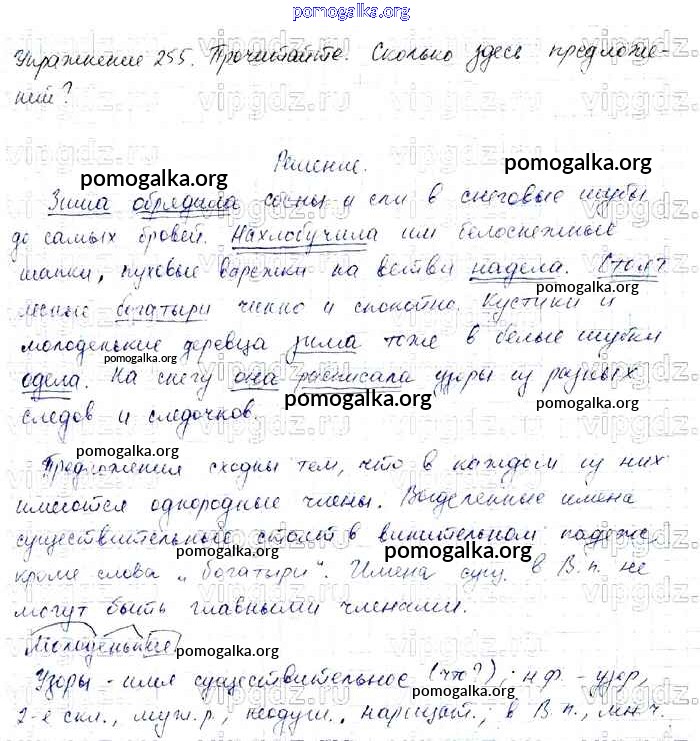 pomogalka.org
Упражнение 255. Прочитайте. Сколько здесь предложе-
ний?
Решение.
pomogalka.org
pomogalka.org
Зима обрядила сосны и ели в снеговые шубы
до самых бровей. Нахлобучила им белоснежные
шапки, пуховые варежки на ветви надела. Стоят
pomogalka.org
лесные богатыри чинно и спокойно. Кустики и
молоденькие деревца зима тоже в белые шубки
pomogalka.org
одела. На снегу она расписала узоры из разных
pomogalka.org
pomogalka.org
следов и следочков.
pomogalka.org
Предложения сходны тем, что в каждом из них
имеются однородные члены. Выделенные имена
существительные стоят в винительном падеже,
pomogalka.org
pomogalka.org
кроме слова „богатыри“. Имена сущ. в В.п. не
могут быть главными членами.
Молоденькие
pomogalka.org
Узоры - имя существительное (что?); н.ф. - узор,
pomogalka.org
2-е скл., муж.р., неодуш., нарицат.; в В.п., мн.ч.